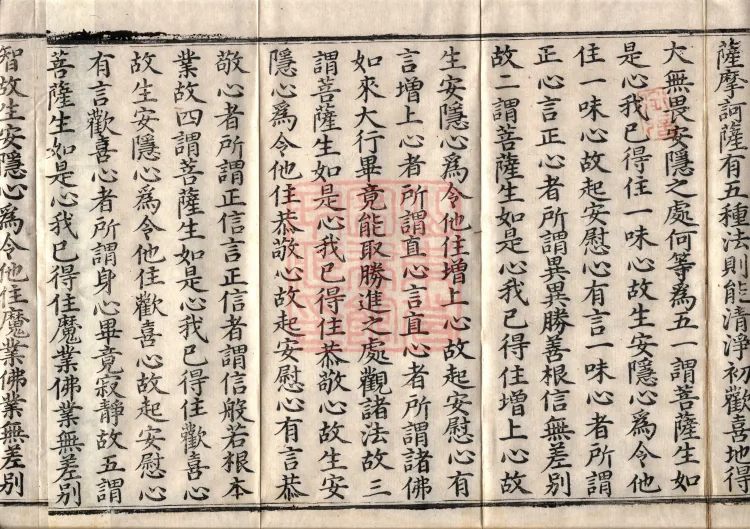 薩摩訶薩有五種法則能清淨初歡喜地得
大無畏安隱之處何等為五一謂菩薩生如
是心我已得住一味心故生安隱心為令他
住一味心故起安慰心有言一味心者所謂
正心言正心者所謂異異勝善根信無差別
故二謂菩薩生如是心我已得住增上心故
生安隱心為令他住增上心故起安慰心有
言增上心者所謂直心言直心者所謂諸佛
如來大行畢竟能取勝進之處觀諸法故三
謂菩薩生如是心我已得住恭敬心故生安
隱心為令他住恭敬心故起安慰心有言恭
敬心者所謂正信言正信者謂信般若根本
業故四謂菩薩生如是心我已得住歡喜心
故生安隱心為令他住歡喜心故起安慰心
有言歡喜心者所謂身心畢竟寂靜故五謂
菩薩生如是心我已得住魔業佛業無差別
智故生安隱心為令他住魔業佛業無差別